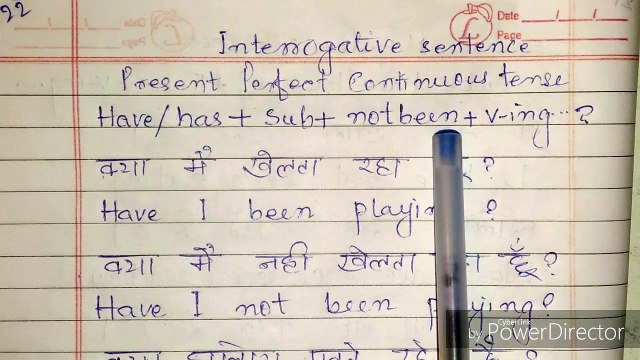 22
Date
Page
Interrogative sentence
Present Perfect Continuous tense
Have/has + Sub + not been + v-ing...?
क्या मैं खेलता रहा ?
Have I been playing ?
क्या मैं नही खेलता हूँ?
Have I not been playing?
CyberLink
by PowerDirector